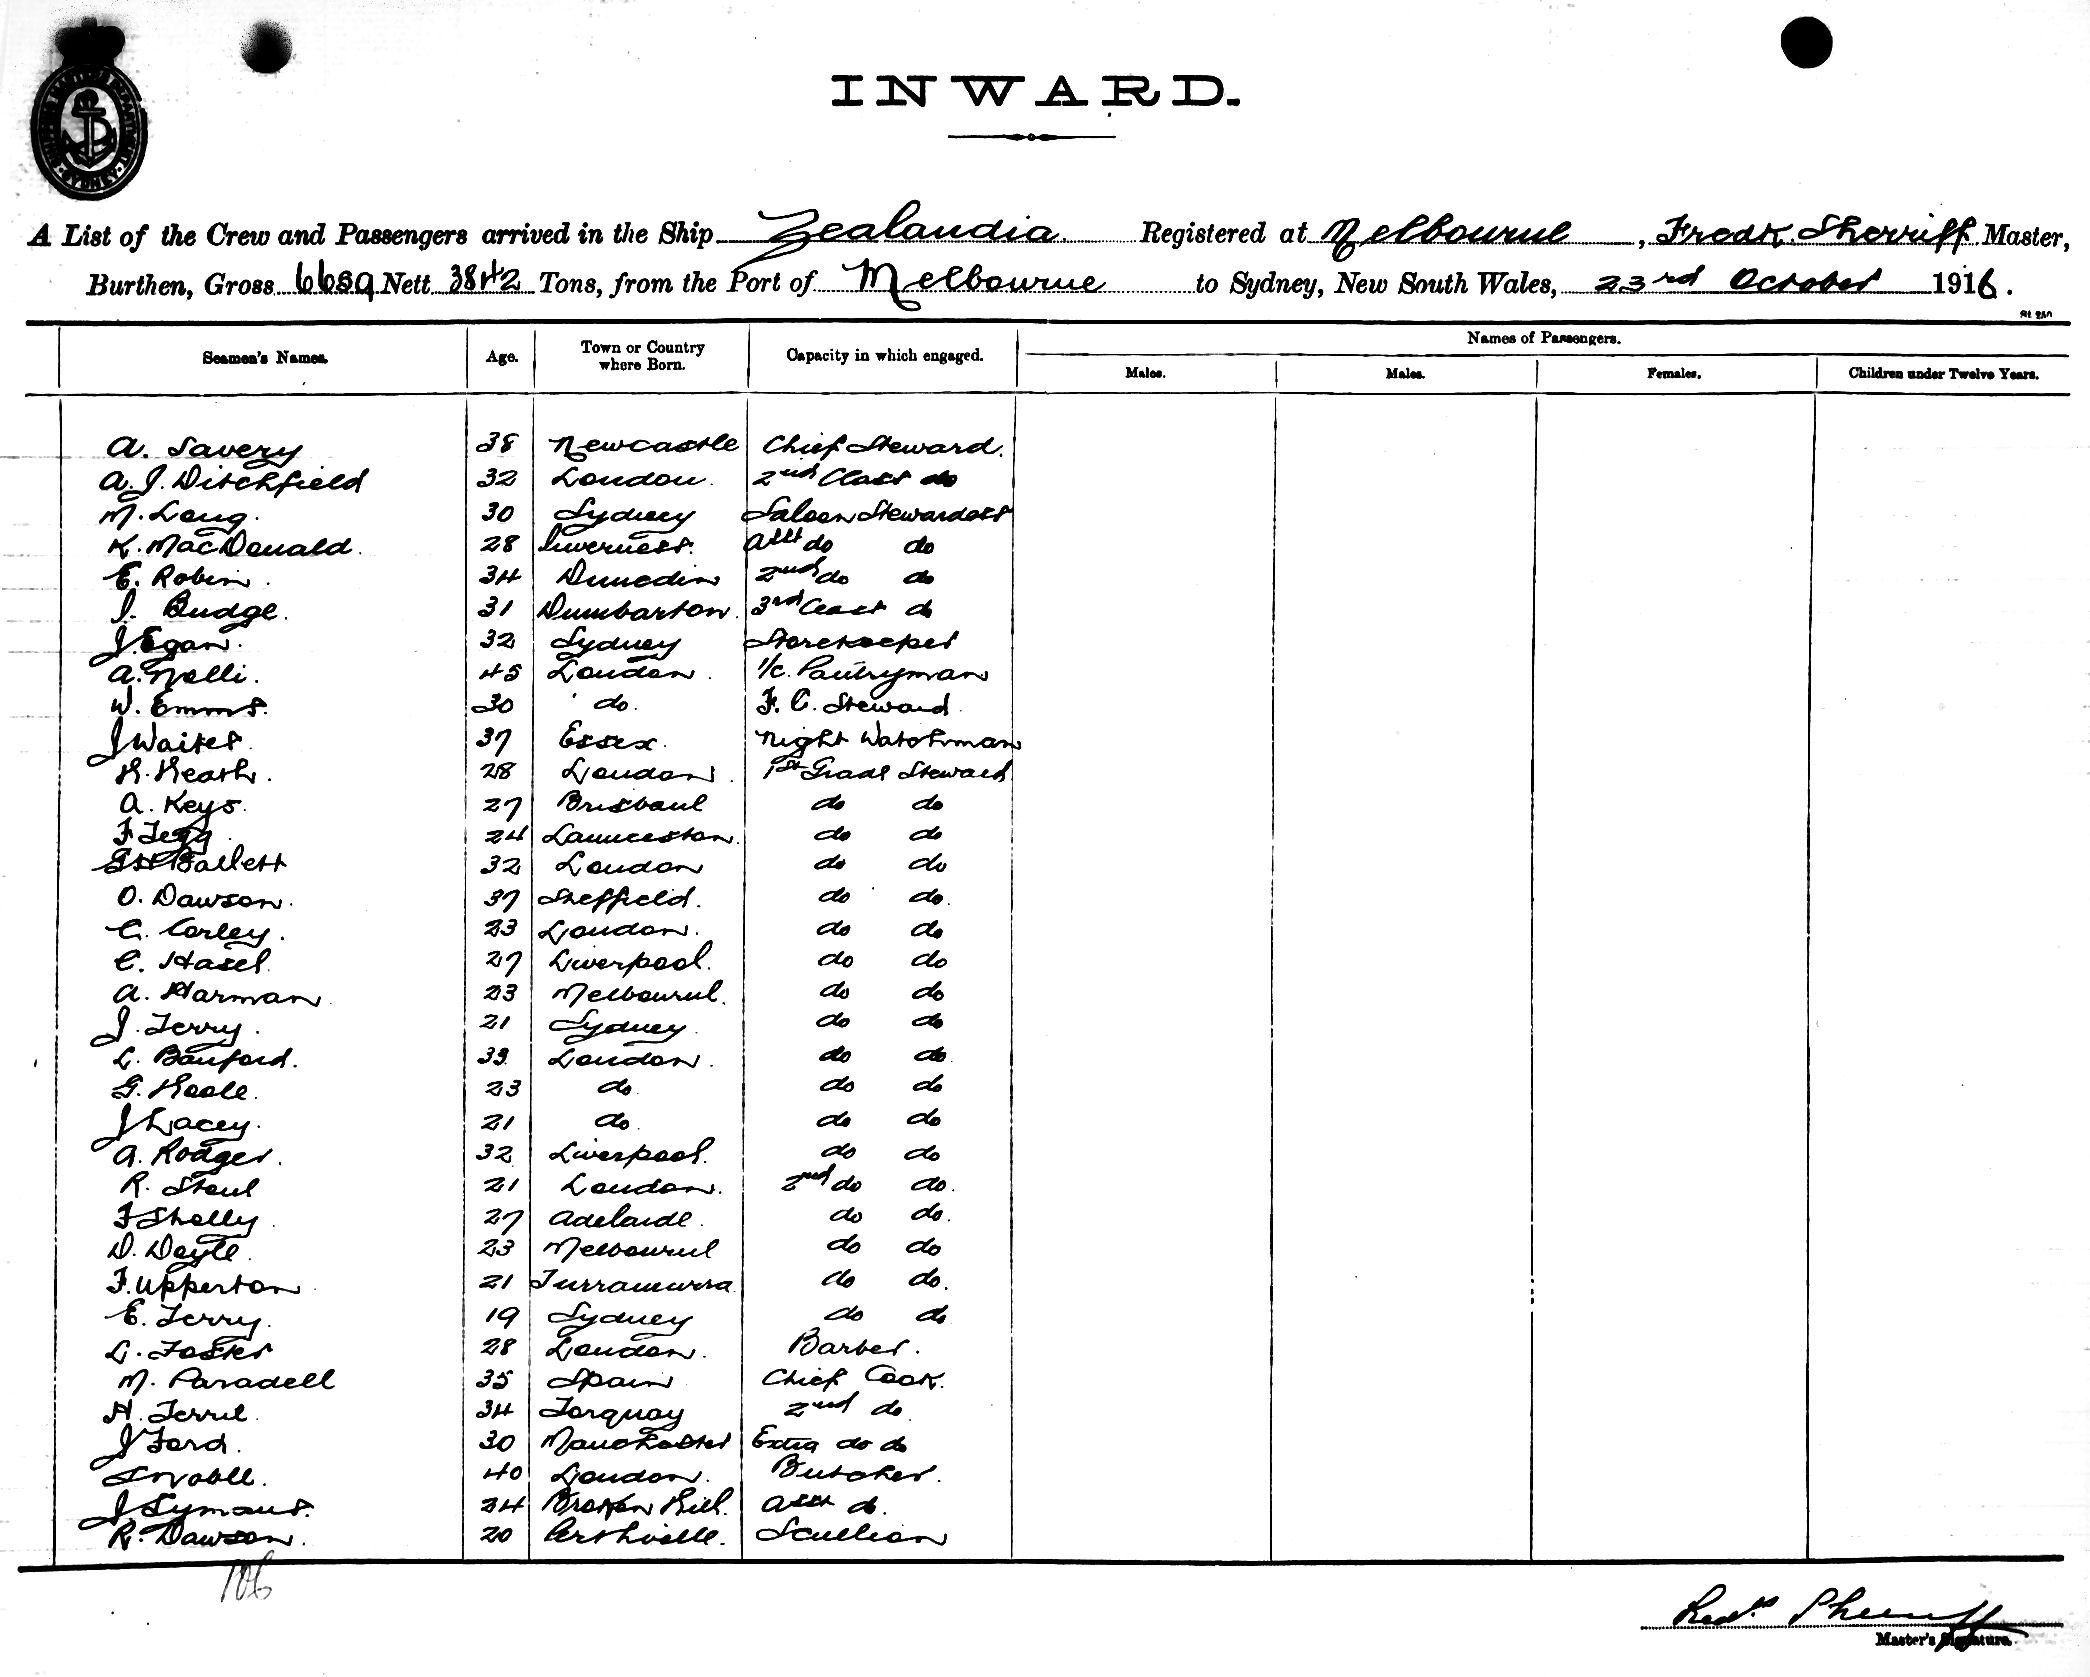 SHIPPING MASTER'S DEPARTMENT SYDNEY
INWARD.
A List of the Crew and Passengers arrived in the Ship Zealandia Registered at Melbourne, Fredk. Sherriff Master,
Burthen, Gross 6659 Nett 3842 Tons, from the Port of Melbourne to Sydney, New South Wales, 23rd October 1916.
Seamen's Names. Age. Town or Country where Born. Capacity in which engaged. Names of Passengers.
Males. Males. Females. Children under Twelve Years.
A. Savery 38 Newcastle Chief Steward.
A. J. Ditchfield 32 London. 2nd Class do
M. Long. 30 Sydney Saloon Stewardess
K. MacDonald. 28 Inverness. Asst do do
E. Robin. 34 Dunedin 2nd do do
J. Budge. 31 Dumbarton. 3rd Class do
J Egan. 32 Sydney Storekeeper
A. Nelli. 45 London. 1/c. Pantryman
W. Emms. 30 do. F. C. Steward
J Waites. 37 Essex. Night Watchman
H. Heath. 28 London. 1st Grade Steward
A. Keys. 27 Brisbane do do
F Tegg. 24 Launceston. do do
Ballett 32 London do do
O. Dawson. 37 Sheffield. do do.
C. Corley. 23 London. do do
C. Hasel. 27 Liverpool. do do
A. Harman. 23 Melbourne. do do
J. Terry. 21 Sydney. do do
L. Banford. 33 London. do do.
G. Hoole. 23 do do do
J Lacey. 21 do do do
A. Rodger. 32 Liverpool. do do
R. Stone 21 London. 2nd do do.
F Shelly. 27 Adelaide. do do.
D. Doyle. 23 Melbourne do do
F. Upperton 21 Turramurra do do.
E. Terry. 19 Sydney do do
L. Foster 28 London. Barber.
M. Paradell 35 Spain Chief Cook.
H. Terril. 34 Torquay 2nd do
J Ford. 30 Manchester Extra do do
Noble. 40 London. Butcher.
J. Symons. 24 Broken Hill. Asst do.
R. Dawson. 20 Perthville. Scullion
106
Fredk Sherriff
Master's Signature.